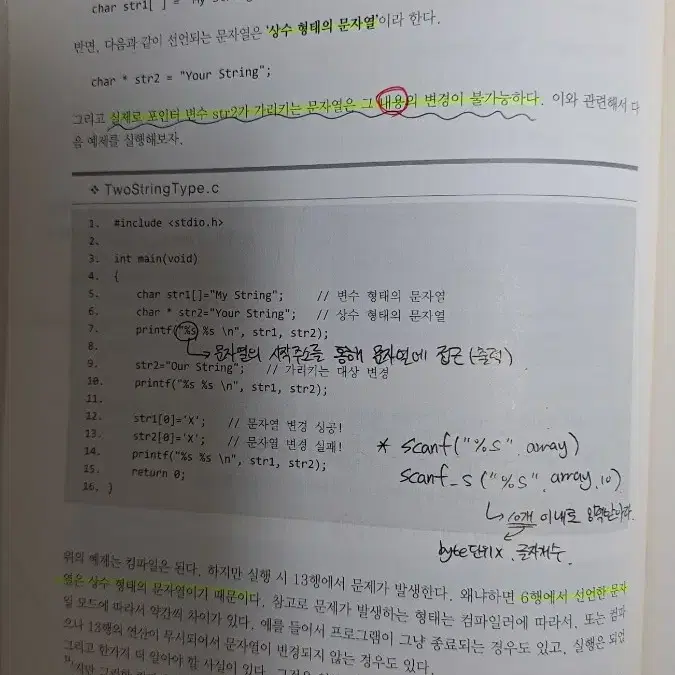 char str1[ ] = "My String
반면, 다음과 같이 선언되는 문자열은 '상수 형태의 문자열'이라 한다.
char * str2 = "Your String";
그리고 실제로 포인터 변수 str2가 가리키는 문자열은 그 내용의 변경이 불가능하다. 이와 관련해서 다
음 예제를 실행해보자.
❖ TwoStringType.c
1. #include <stdio.h>
2.
3. int main(void)
4. {
5. char str1[]="My String"; // 변수 형태의 문자열
6. char * str2="Your String"; // 상수 형태의 문자열
7. printf("%s %s \n", str1, str2);
8.
↳ 문자열의 시작주소를 통해 문자열에 접근(출력)
9. str2="Our String"; // 가리키는 대상 변경
10. printf("%s %s \n", str1, str2);
11.
12. str1[0]='X'; // 문자열 변경 성공!
13. str2[0]='X'; // 문자열 변경 실패!
14. printf("%s %s \n", str1, str2);
15. return 0;
16. }
* scanf("%s", array)
scanf_s("%s", array, 10)
↳ 10개 이내로 입력받아라.
byte단위X, 글자개수.
위의 예제는 컴파일은 된다. 하지만 실행 시 13행에서 문제가 발생한다. 왜냐하면 6행에서 선언한 문자
열은 상수 형태의 문자열이기 때문이다. 참고로 문제가 발생하는 형태는 컴파일러에 따라서, 또는 컴파
일 모드에 따라서 약간씩 차이가 있다. 예를 들어서 프로그램이 그냥 종료되는 경우도 있고, 실행은 되었
으나 13행의 연산이 무시되어서 문자열이 변경되지 않는 경우도 있다.
그리고 한가지 더 알아야 할 사실이 있다.